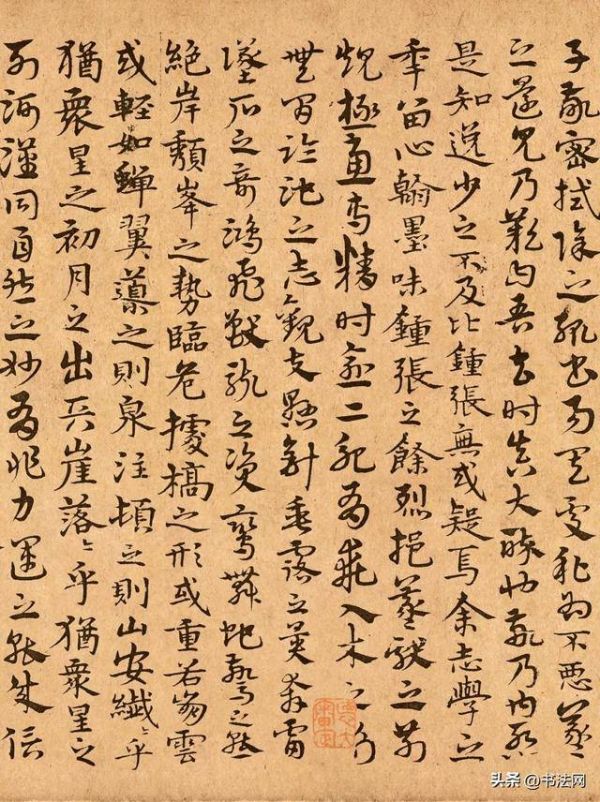 子敬密拭除之輒書易其處私為不惡羲
之還見乃歎曰吾去時真大醉也敬乃內慙
是知逸少之不及比鍾張無或疑焉余志學之
年留心翰墨味鍾張之餘烈挹羲獻之前
規極慮專精時逾二紀有乖入木之術
無間臨池之志觀夫懸針垂露之異奔雷
墜石之奇鴻飛獸駭之資鸞舞蛇驚之態
絕岸頹峯之勢臨危據槁之形或重若崩雲
或輕如蟬翼導之則泉注頓之則山安纖〻乎
猶眾星之初月之出天崖落〻乎猶眾星之
列河漢同自然之妙有非力運之能成信
头条 @书法网